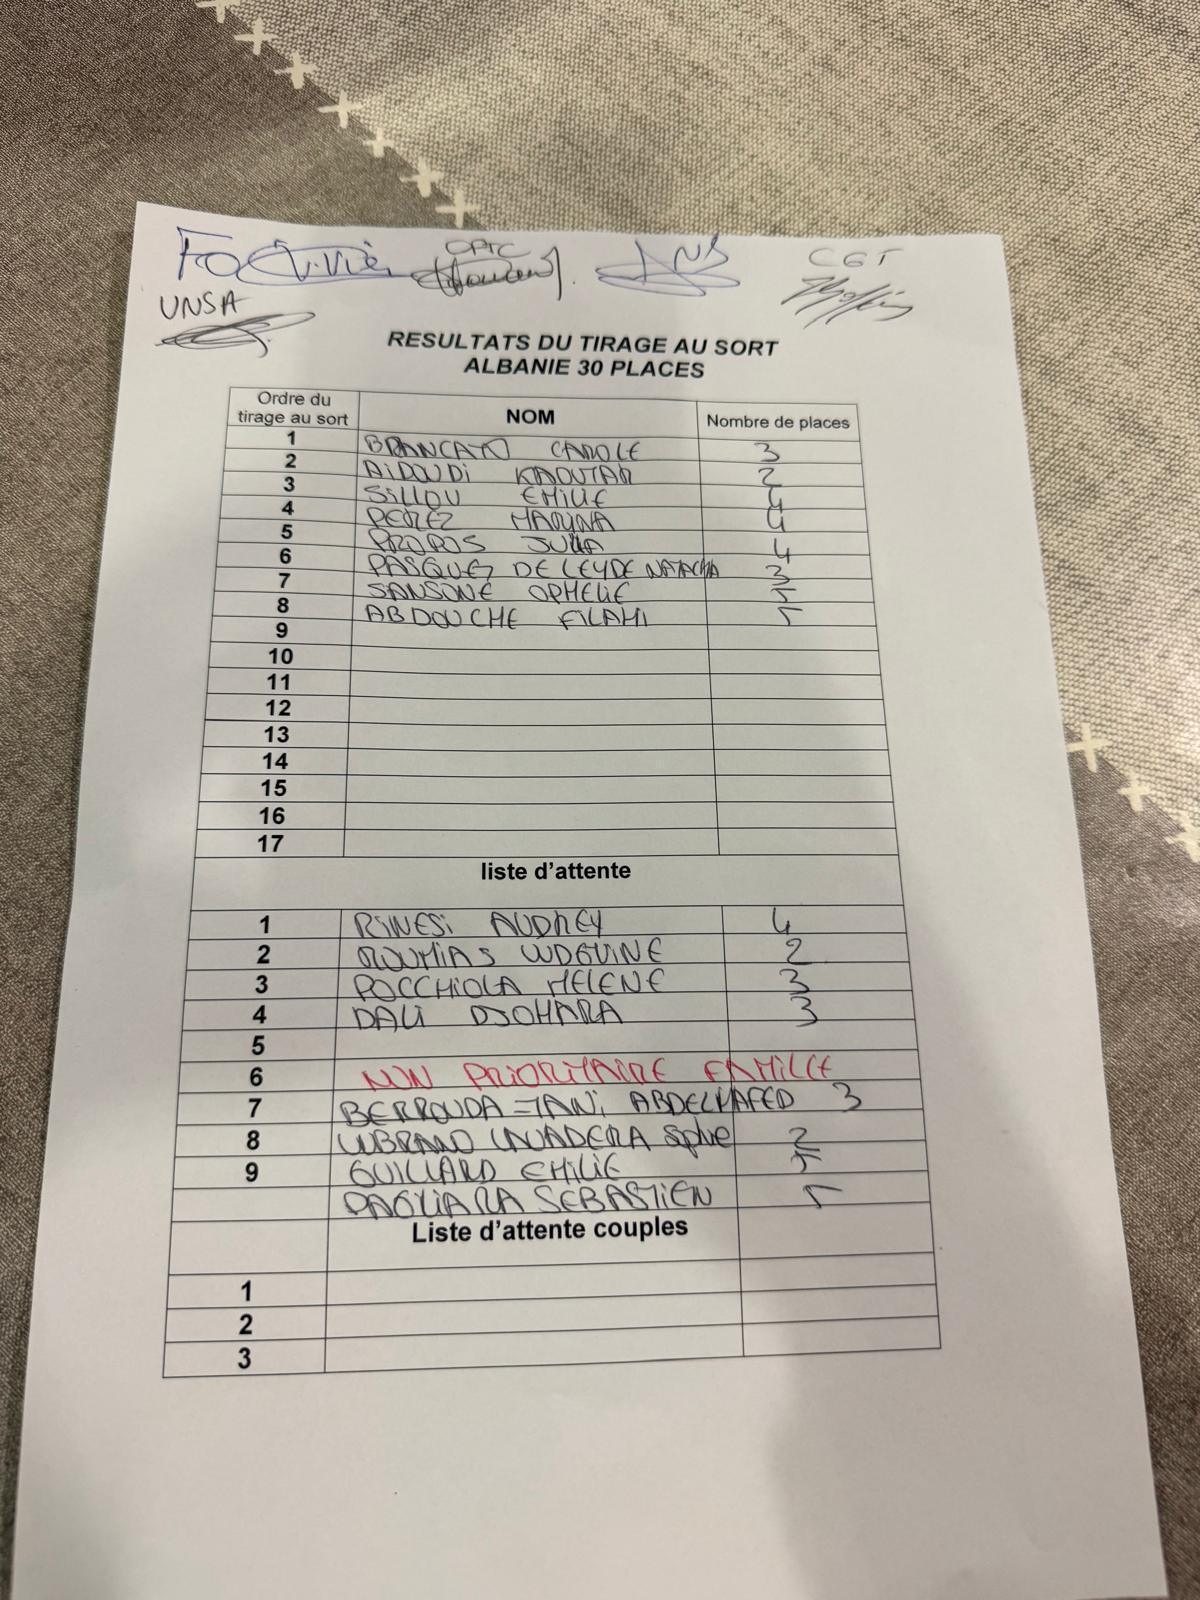 FO CFTC SNS CGT
UNSA
RESULTATS DU TIRAGE AU SORT
ALBANIE 30 PLACES
Ordre du tirage au sort NOM Nombre de places
1 BRANCATO CAROLE 3
2 AIDOUDI KAOUTAR 2
3 SILLOU EMILIE 4
4 PEREZ MARINA 4
5 PROPOS JULIA 4
6 PASQUEZ DE LEYDE NATACHA 3
7 SANSONE OPHELIE 5
8 ABDOUCHE FILAMI 5
9
10
11
12
13
14
15
16
17
liste d'attente
1 RINESI AUDREY 4
2 ROUMIAS LUDGVINE 2
3 POCCHIOLA HELENE 3
4 DALI DJOHARA 3
5
6 NON PRIORITAIRE FAMILLE
7 BERROUDA-TANI ABDELHAFED 3
8 LUBRANO LAVADERA Sophie 2
9 GUILLARD EMILIE 5
PAGLIARA SEBASTIEN 5
Liste d'attente couples
1
2
3